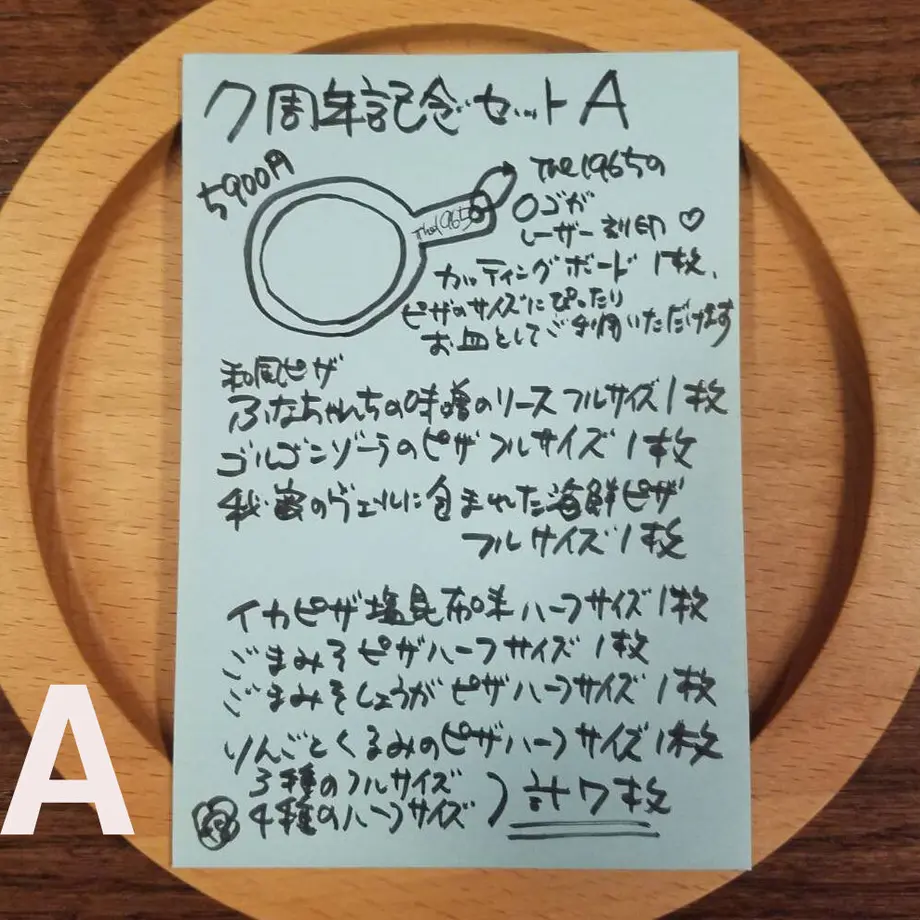 7周年記念セットA
5900円
The1965の
ロゴが
レーザー刻印♡
The1965
カッティングボード 1枚、
ピザのサイズにぴったり
お皿としてご利用いただけます
和風ピザ
ふなちゃんちの味噌のソース フルサイズ 1枚
ゴルゴンゾーラのピザ フルサイズ 1枚
秘蜜のヴェールに包まれた海鮮ピザ
フルサイズ 1枚
イカピザ塩昆布味 ハーフサイズ 1枚
ごまみそピザハーフサイズ 1枚
ごまみそしょうがピザハーフサイズ 1枚
りんごとくるみのピザハーフサイズ 1枚
3種のフルサイズ
4種のハーフサイズ ) 計7枚
A